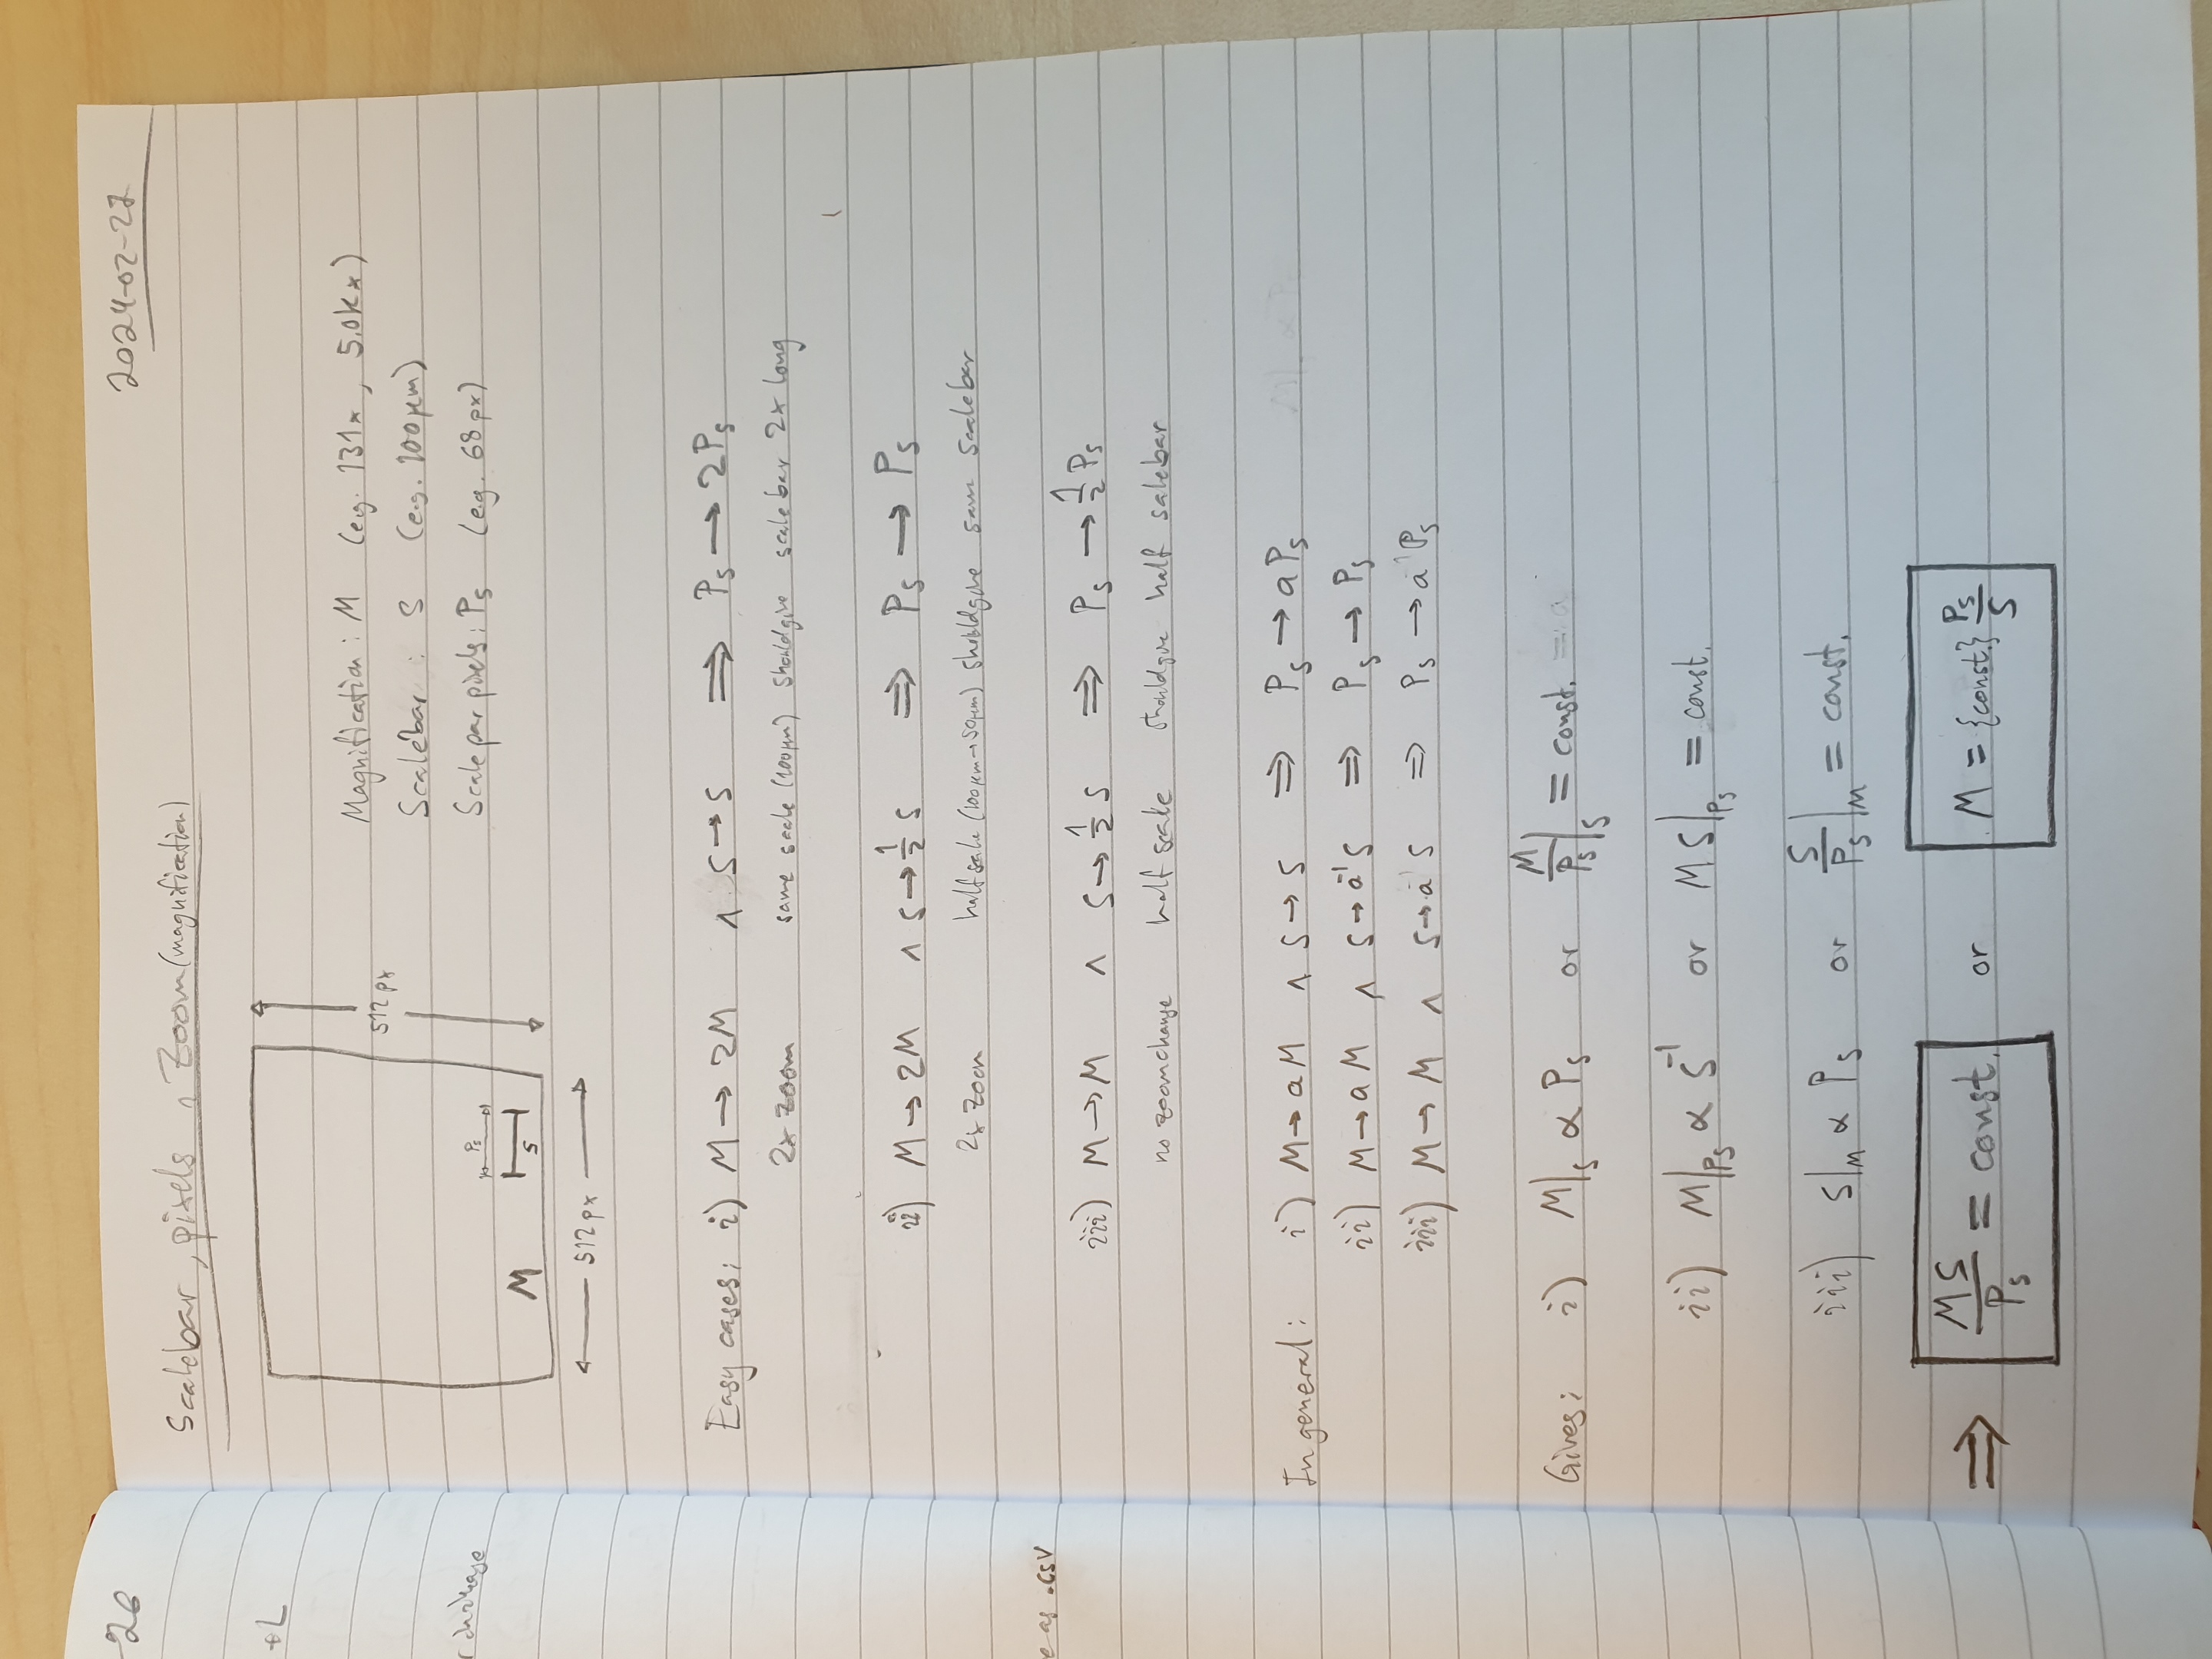 -26
+L
e as .csv
2024-02-27
Scalebar, pixels ∧ Zoom (magnification)
512 px
Magnification: M (e.g. 131x, 5.0kx)
Scalebar: S (e.g. 100μm)
Scale par pixels: P_S (e.g. 68 px)
P_S
M
S
512 px
Easy cases: i) M → 2M ∧ S → S ⇒ P_S → 2P_S
2x zoom same scale (100μm) should give scale bar 2x long
ii) M → 2M ∧ S → 1/2 S ⇒ P_S → P_S
2x zoom half scale (100μm → 50μm) should give same scalebar
iii) M → M ∧ S → 1/2 S ⇒ P_S → 1/2 P_S
no zoom change half scale should give half salebar
In general: i) M → aM ∧ S → S ⇒ P_S → aP_S
ii) M → aM ∧ S → a^-1 S ⇒ P_S → P_S
iii) M → M ∧ S → a^-1 S ⇒ P_S → a^-1 P_S
Gives: i) M|_S ∝ P_S or M/P_S|_S = const.
ii) M|_P_S ∝ S^-1 or MS|_P_S = const.
iii) S|_M ∝ P_S or S/P_S|_M = const.
⇒ MS/P_S = const. or M = {const.} P_S/S